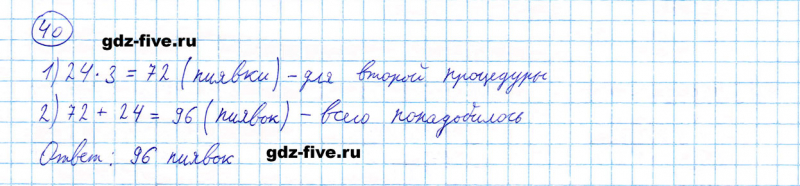 40
gdz-five.ru
1) 24 · 3 = 72 (пиявки) - для второй процедуры
2) 72 + 24 = 96 (пиявок) - всего понадобилось
Ответ: 96 пиявок
gdz-five.ru